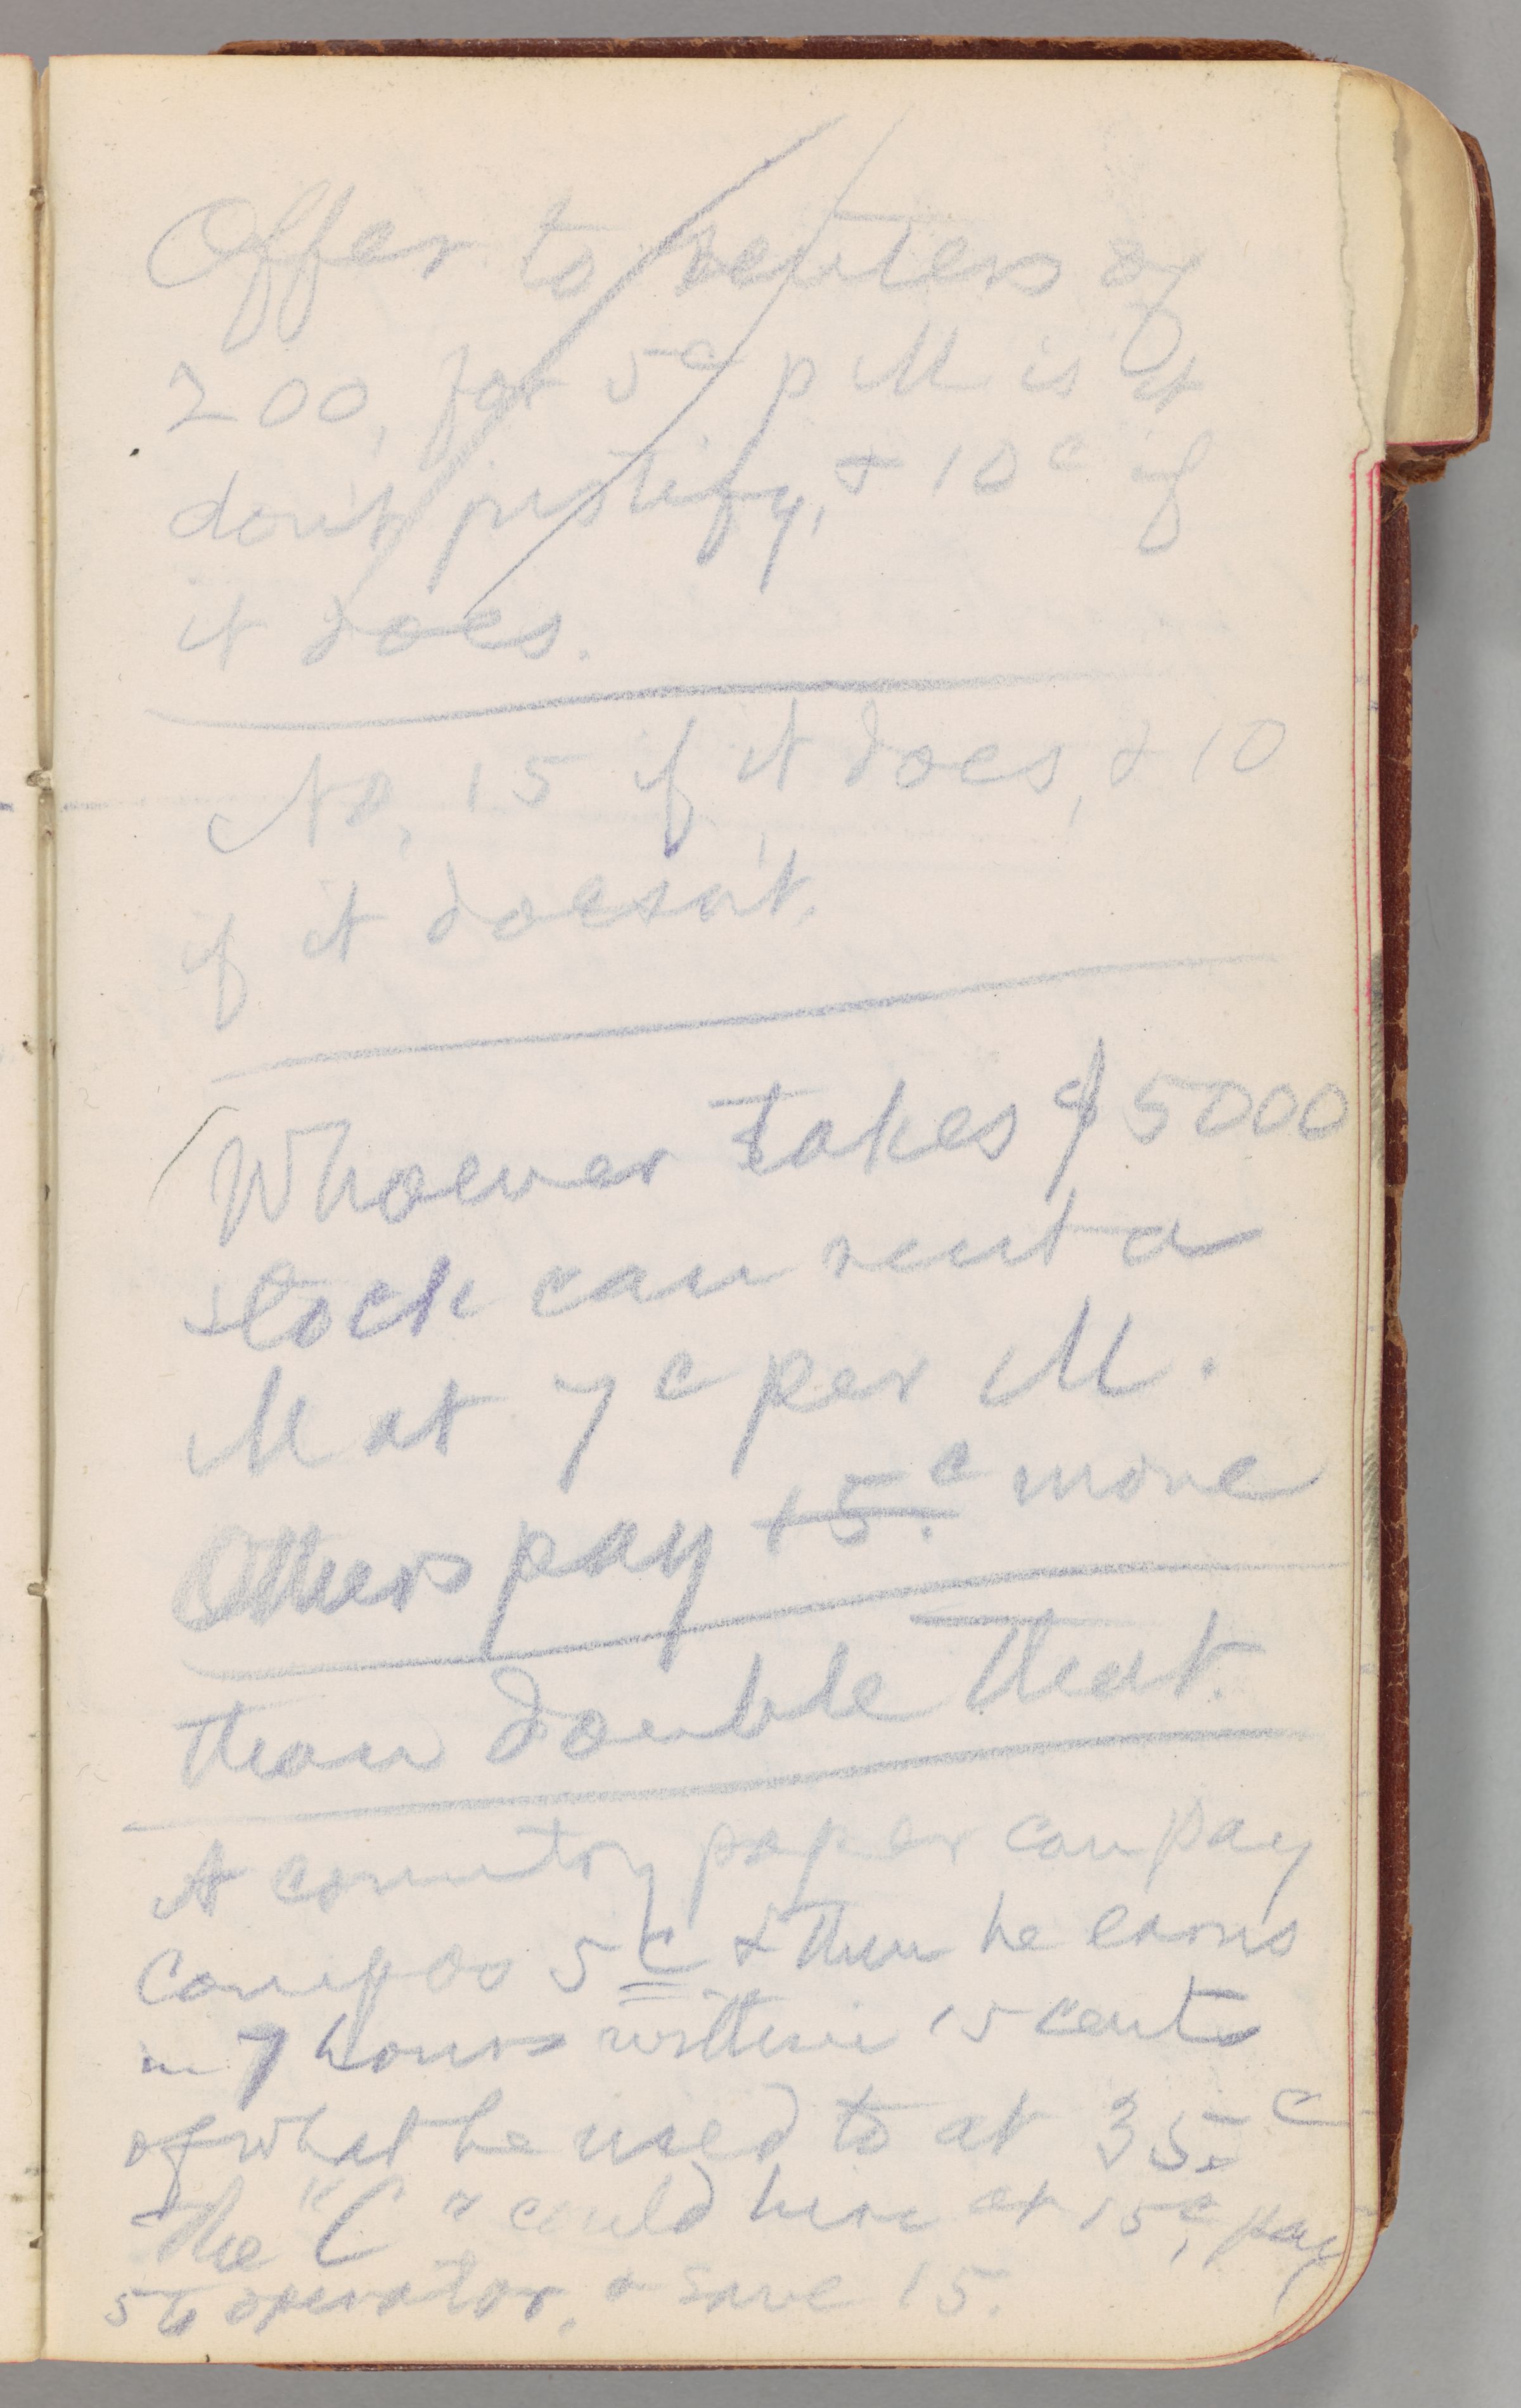 Offer to renters of
200, for 5c p M is it
don't justify, & 10c if
it does.
No, 15 if it does, & 10
if it doesn't.
Whoever takes $5000
stock can rent a
M at 7c per M.
Others pay +5.c more
than double that.
A country paper can pay
compos 5c & then he earns
in 7 hours within 15 cents
of what he used to at 35.c
The "C" could hire at 15c, pay
5 to operator, & save 15.